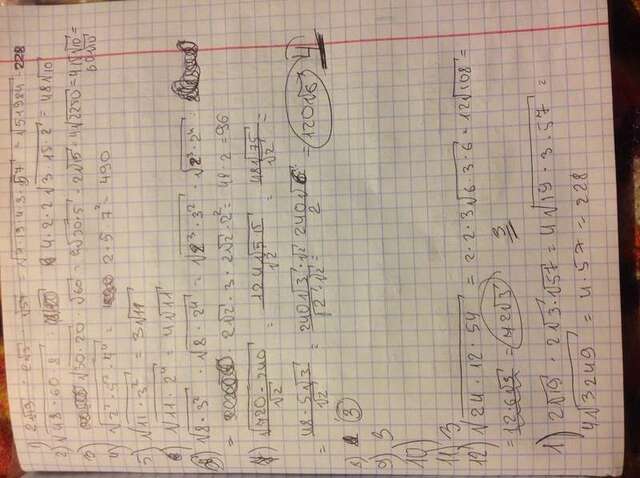 1) 2√19 · 2√3 · √57 = √4·19·4·3·57 = √51984 = 228
2) √48·60·2 4·2·2√3·15·2 = 48√10
3) √30·20 · √60 = 2√30·5 · 2√15 = 4√2250 = 4·15√10 =
60√10
4) √3² · 5² · 7⁴ = 2·5·7² = 490
5) √11·3² = 3√11
6) √11·2⁴ = 4√11
√8·3² · √8·2⁴ = √2³·3² · √2³·2⁴
= 2√2 · 3 · 2√2 · 2² = 48·2 = 96
7) √720·240 / √2 = 124√515 / √2 = 48√75 / √2 =
= 48·5√3 / √2 = 240√3·√2 / √2·√2 = 240√6 / 2 = 120√6 4
8) 3
9) 3
10)
11) 3
12) √24·12·54 = 2·2·3√6·3·6 = 12√108 =
= 12·6√3 = 72√3 3
1) 2√19 · 2√3·√57 = 4√19·3·57 =
4√3249 = 4·57 = 228